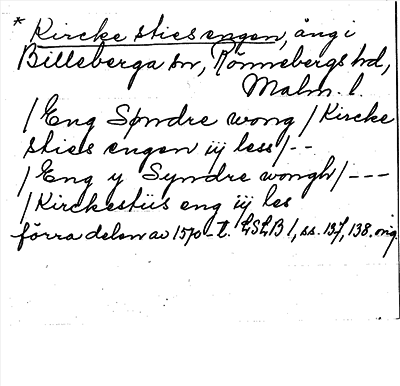 * Kircke sties engen, äng i
Billeberga sn, Rönnebergs hd,
Malm. l.
/ Eng Søndre wong / Kircke
sties engen iij less / - -
/ Eng y Syndre wongh / - - -
/ Kirckestiis eng iij les
förra delen av 1570-t. LSLB 1, ss. 137, 138. orig.